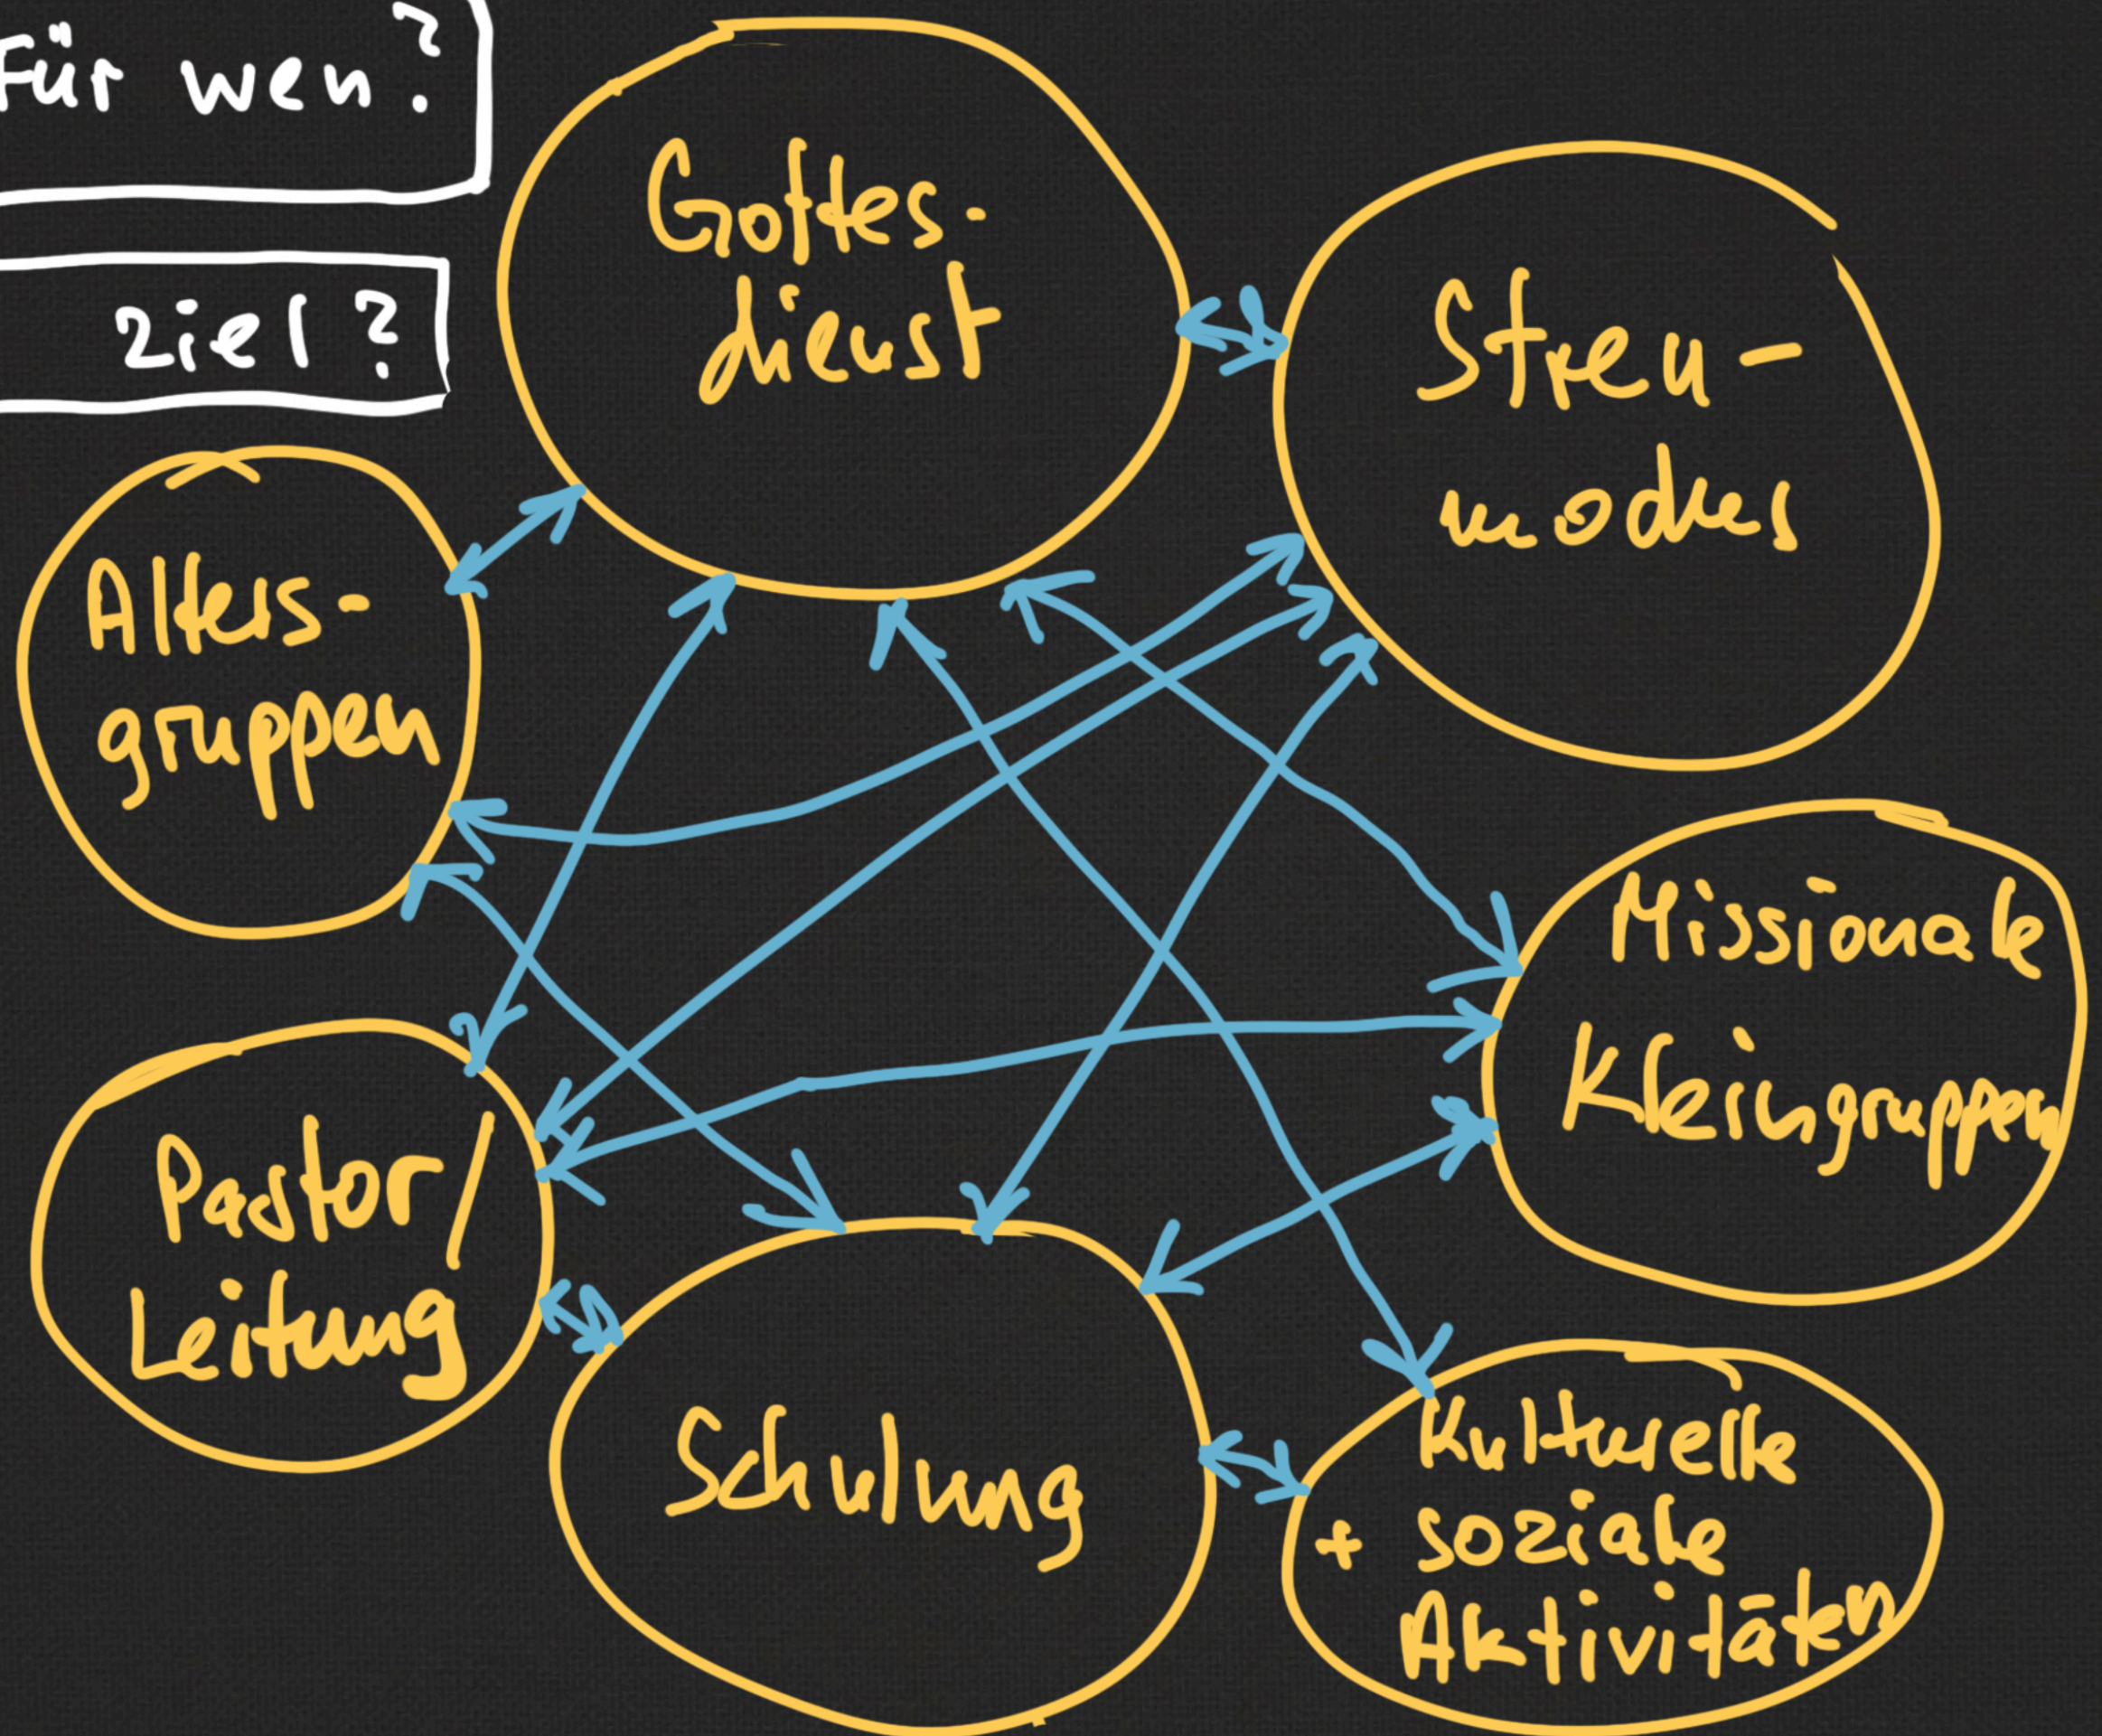 Für wen?
Ziel?
Gottes-
dienst
Streu-
modus
Alters-
gruppen
Missionale
Kleingruppen
Pastor /
Leitung
Schulung
Kulturelle
+ soziale
Aktivitäten